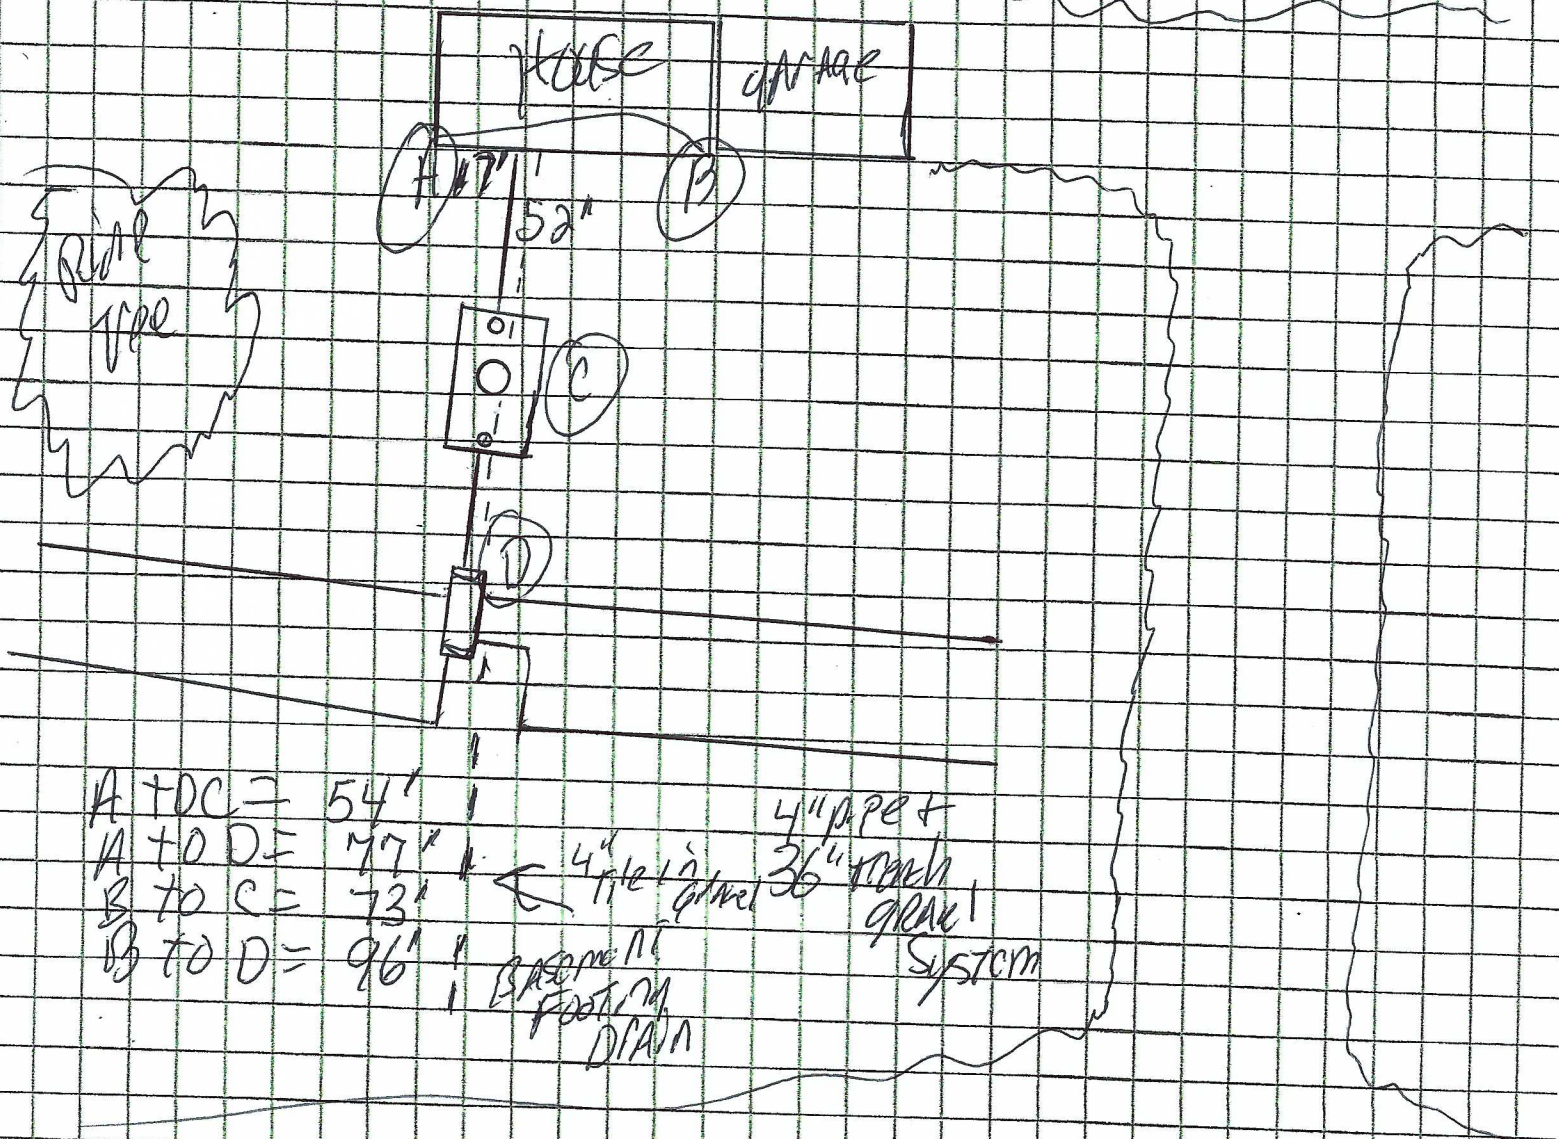 House
garage
A 17'
B
52"
Pine
Tree
C
D
A TO C = 54'
A TO D = 77'
B TO C = 73'
B TO D = 96'
4" tile in
gravel
Basement
Footing
Drain
4" pipe +
36"
gravel
System